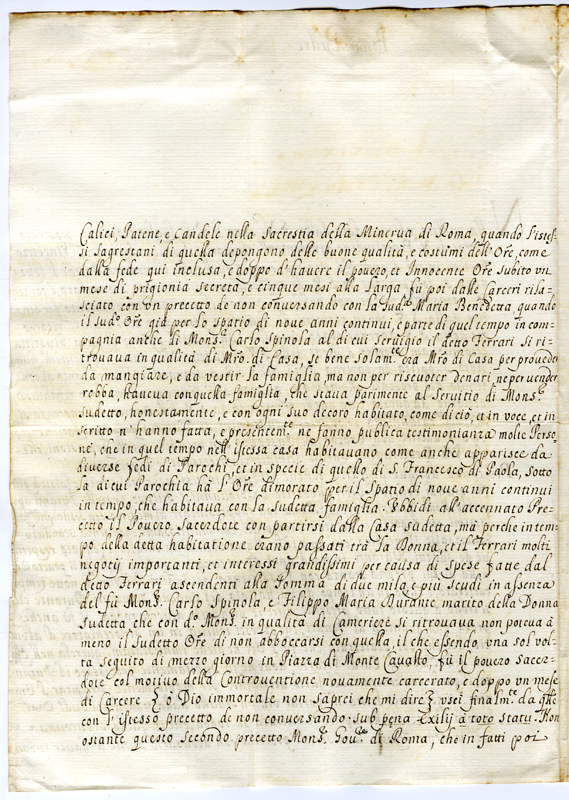 Calici, Patene, e Candele nella Sacrestia della Minerua di Roma, quando l'istes-
si Sagrestani di quella depongono delle buone qualità, e costumi dell'Ore, come
dalla fede qui inclusa, e doppo d'hauere il pouero, et Innocente Ore subito vn
mese di prigionia secreta, e cinque mesi alla larga fù poi dalle Carceri rila-
sciato con vn precetto de non conuersando con la sud.ª Maria Benedetta, quando
il sud.º Ore già per lo spatio di noue anni continui, e parte di quel tempo in com-
pagnia anche di Mons.r Carlo Spinola al di cui seruigio il detto Ferrari si ri-
trouaua in qualità di Mro. di Casa, se bene solam.te era Mro di Casa per proueder
da mangiare, e da vestir la famiglia, ma non per riscuoter denari, ne per vender
robba, haueua con quella famiglia, che staua parimente al Seruitio di Mons.r
sudetto, honestamente, e con ogni suo decoro habitato, come di ciò, et in voce, et in
scritto n'hanno fatta, e presentem.te ne fanno publica testimonianza molte Perso-
ne, che in quel tempo nell'istessa casa habitauano come anche apparisce da
diuerse fedi di Parochi, et in specie di quello di S. Francesco di Paola, sotto
la di cui Parochia hà l'Ore dimorato per il spatio di noue anni continui
in tempo, che habitaua con la sudetta famiglia. Vbbidì all'accennato Pre-
cetto il Pouero Sacerdote con partirsi dalla Casa sudetta, mà perche in tem-
po della detta habitatione erano passati trà la Donna, et il Ferrari molti
negotij importanti, et interessi grandissimi per causa di spese fatte dal
detto Ferrari ascendenti alla somma di due mila, e più scudi in assenza
del fù Mons.r Carlo Spinola, e Filippo Maria Durante marito della Donna
sudetta che con d.º Mons.r in qualità di Cameriere si ritrouaua non poteua à
meno il sudetto Ore di non abboccarsi con quella, il che essendo vna sol vol-
ta seguito di mezzo giorno in Piazza di Monte Cauallo, fù il pouero Sacer-
dote col motiuo della Controuentione nouamente carcerato, e doppo vn mese
di Carcere ( ò Dio immortale non saprei che mi dire ) vscì finalm.te da q.lle
con l'istesso precetto de non conuersando sub pena exilij à toto statu. Non
ostante questo secondo precetto Mons.r Gou.re di Roma, che in fatti poi